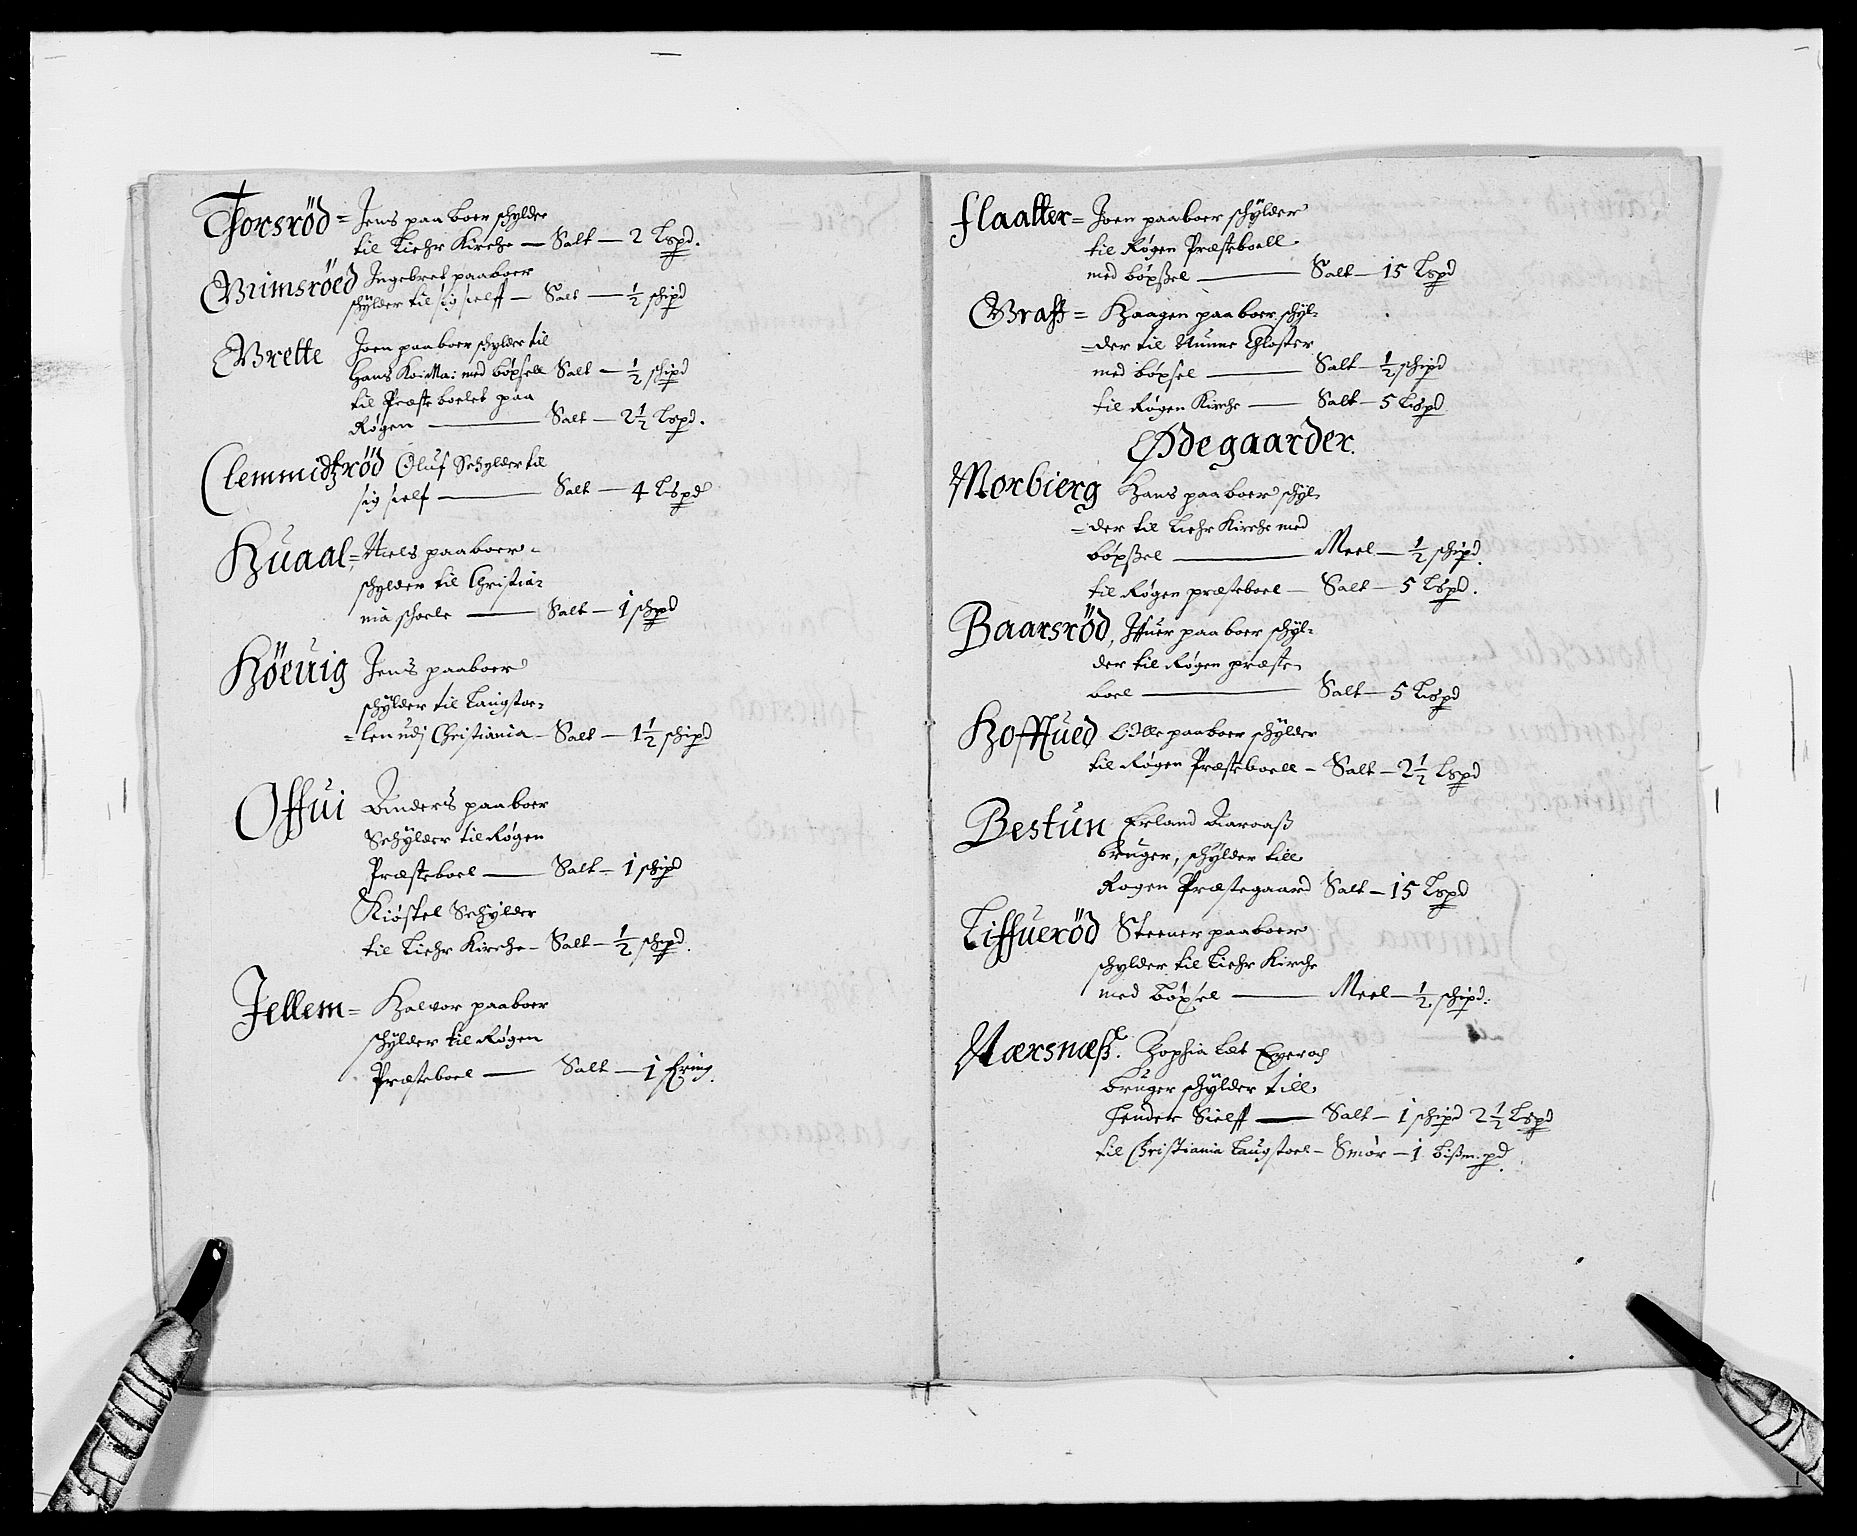 Thorsröd = Jens paa boer schylder
til Liehr Kirche — Salt — 2 Lspd.
Grimsröed Ingebret paaboer
schÿlder til sig sielff — Salt — ½ schipd
Grette Joen paaboer schylder til
Hans Koi: Ma: med böxsell Salt — ½ schipd
til Præste boelet paa
Røgen — Salt — 2½ Lspd.
Clemmidtzröd Oluf Schylder til
sig sielf — Salt — 4 Lspd
Huaal = Niels paaboer
schylder til Christia=
nia schoele — Salt — 1 schpd
Höeuig Jens paaboer
schÿlder til Laugstoe=
=len udj Christiania — Salt — 1½ schipd
Offui Anders paaboer
Schÿlder til Røgen
Præsteboel — Salt — 1 schipd
Kiøstel Schÿlder
til Liehr Kirche — Salt — ½ schipd.
Jellem = Halvor paaboer
schÿlder til Røgen
Præsteboel — Salt — 1 fring.
Flaatter = Joen paaboer schÿlder
til Røgen Præsteboell
med böxsel — Salt — 15 Lspd
Graff = Haagen paaboer schÿl=
=der til Nunne Closter
med böxsel — Salt — ½ schipd
til Røgen Kirche — Salt — 5 Lispd
Ødegaarder.
Morbierg Hans paaboer schÿl=
=der til Liehr Kirche med
böxsel — Meel — ½ schipd.
til Røgen præsteboel — Salt — 5 Lspd.
Baarsröd, Iffuer paaboer schÿl=
der til Røgen præste
boel — Salt — 5 Lispd
Hoffued Olle paaboer schÿlder
til Røgen Præsteboell — Salt — 2½ Lspd
Bestún Erland Aaroaß
bruger, schÿlder till
Rogen Præstegaard Salt — 15 Lspd
Liffueröd Steener paaboer
schylder til Liehr Kirche
med böxsel — Meel — ½ schipd.
Nærsnæß. Sophia
bruger schÿlder till
hender Sielff — Salt — 1 schipd 2½ Lspd
til Christiania Laugstoel — Smør — 1 bißm. pd.